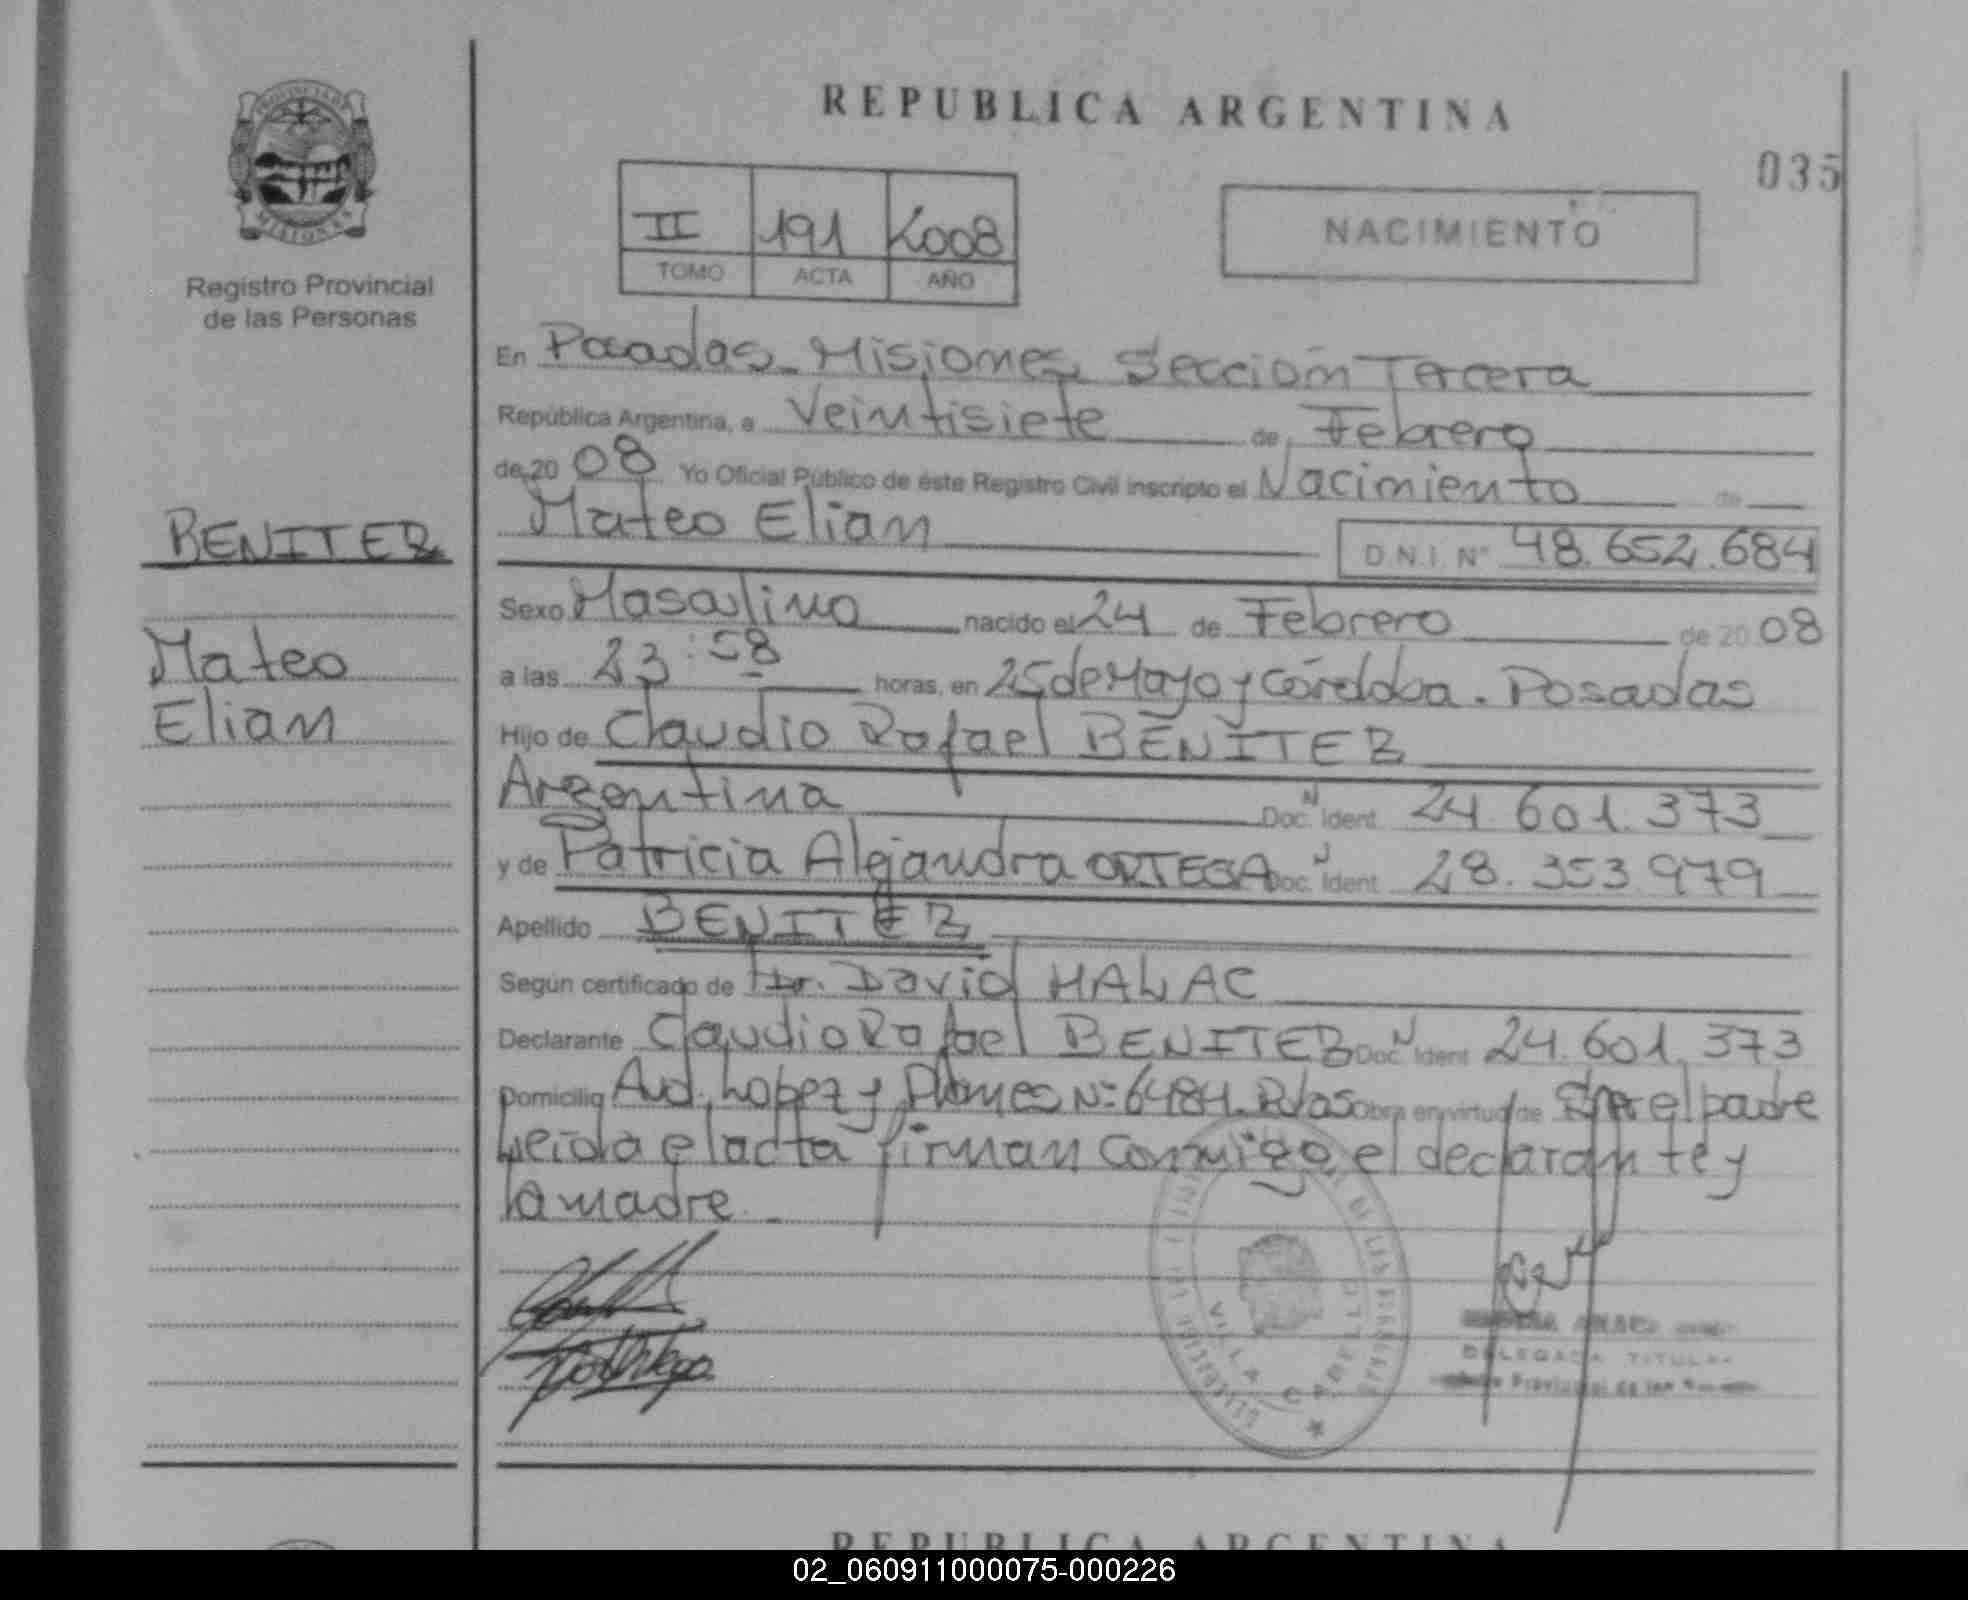 REPUBLICA ARGENTINA
035
PROVINCIA DE MISIONES
Registro Provincial
de las Personas
II 191 2008
TOMO ACTA AÑO
NACIMIENTO
En Posadas - Misiones, Sección Tercera
República Argentina, a Veintisiete de Febrero
de 20 08 Yo Oficial Público de éste Registro Civil inscripto el Nacimiento de
Mateo Elian D.N.I. Nº 48.652.684
BENITEZ
Mateo
Elian
Sexo Masculino nacido el 24 de Febrero de 20 08
a las 23:58 horas, en 25 de Mayo y Córdoba. Posadas
Hijo de Claudio Rafael BENITEZ
Argentina Doc. Ident. 24.601.373
y de Patricia Alejandra ORTEGA Doc. Ident. 28.353.979
Apellido BENITEZ
Según certificado de Dr. David HALAC
Declarante Claudio Rafael BENITEZ Doc. Ident. 24.601.373
Domicilio Avd. Lopez y Planes Nº 6484. Pdas Obra en virtud de Ser el padre
Leída el acta firman conmigo, el declarante y
la madre
VILLA
DELEGADA TITULAR
Provincial de las
REPUBLICA ARGENTINA
02_060911000075-000226